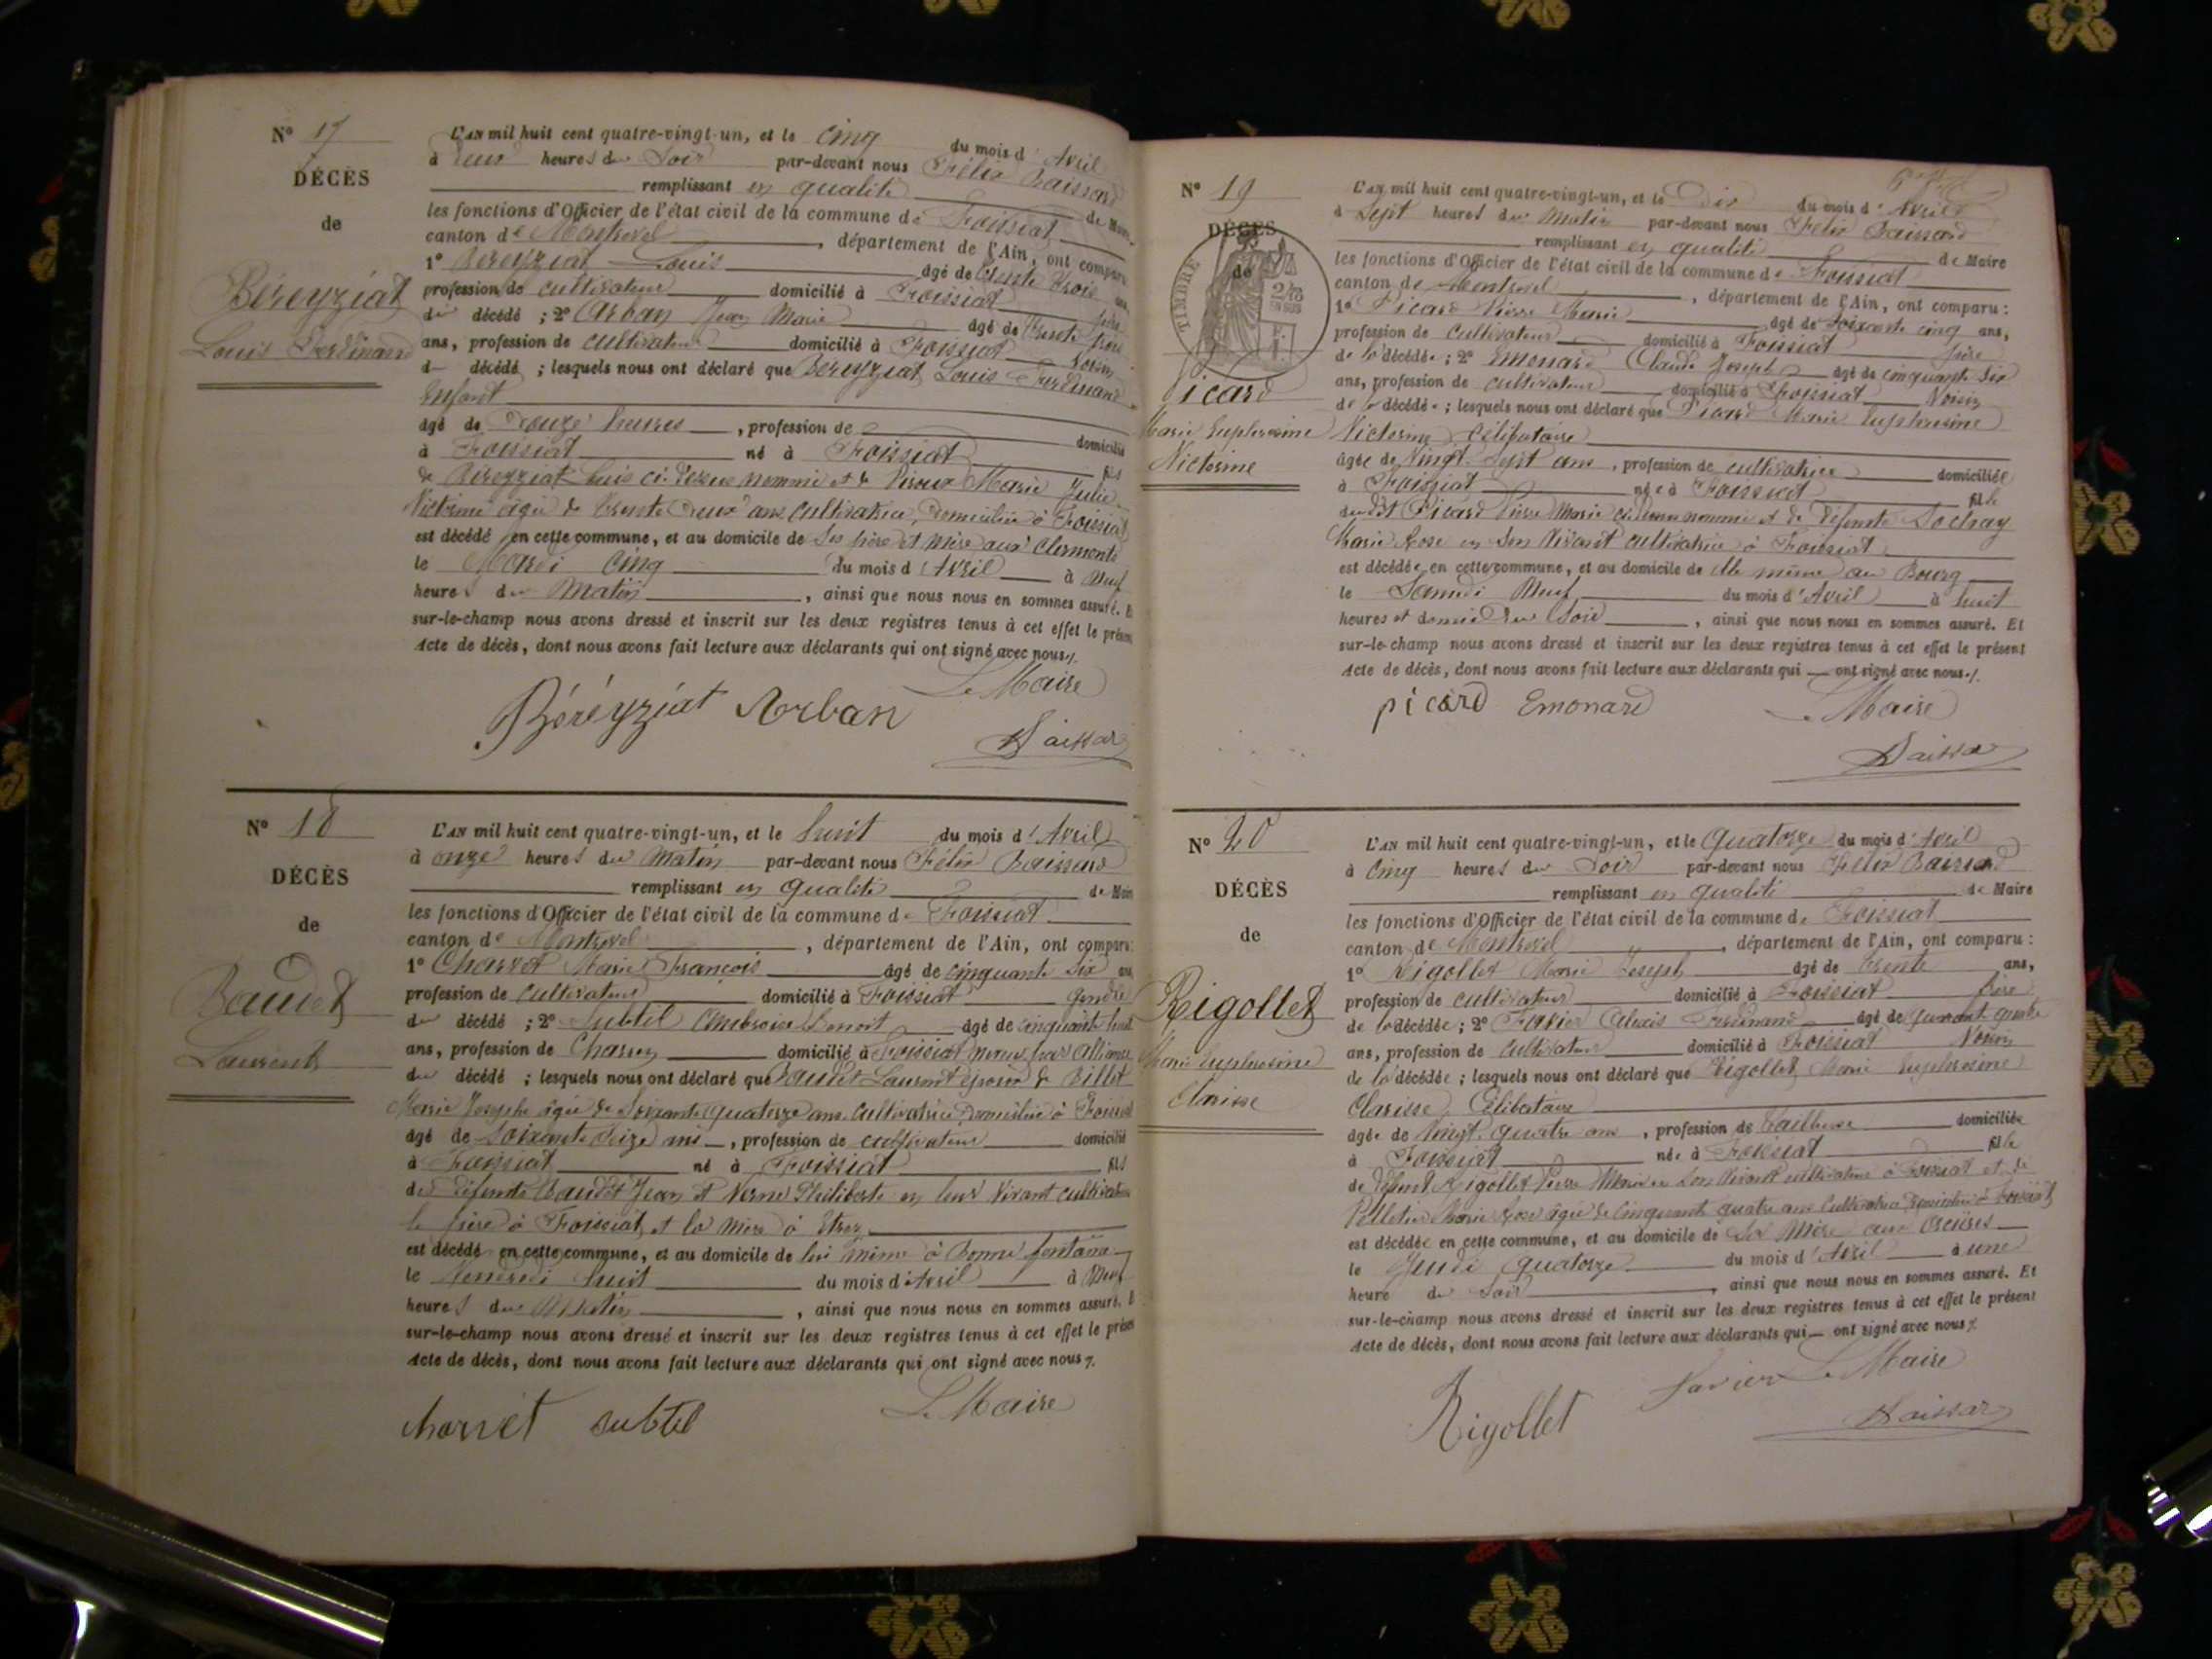 N° 17
DÉCÈS
de
Béreyziat
Louis Ferdinand
L'AN mil huit cent quatre-vingt-un, et le Cinq du mois d'Avril
à deux heures du Soir par-devant nous Félix Baissard
remplissant en qualité de Maire
les fonctions d'Officier de l'état civil de la commune de Foissiat
canton de Montrevel, département de l'Ain, ont comparu
1° Béreyziat Louis âgé de trente trois ans,
profession de cultivateur domicilié à Foissiat père
du décédé ; 2° Arban Jean Marie âgé de trente
ans, profession de cultivateur domicilié à Foissiat Voisin
d décédé ; lesquels nous ont déclaré que Béreyziat Louis Ferdinand
Enfant
âgé de Douze heures, profession de domicilié
à Foissiat né à Foissiat fils
de Béreyziat Louis ci-dessus nommé et de Marie Julie
Victorine âgée de trente deux ans cultivatrice, domiciliée à Foissiat
est décédé en cette commune, et au domicile de Ses père et mère aux Clermonts
le Mardi Cinq du mois d'Avril à Neuf
heures du Matin, ainsi que nous nous en sommes assuré. E
sur-le-champ nous avons dressé et inscrit sur les deux registres tenus à cet effet le présen
Acte de décès, dont nous avons fait lecture aux déclarants qui ont signé avec nous
Le Maire
Béréyziat Arban
Baissard
N° 18
DÉCÈS
de
Baudet
Laurent
L'AN mil huit cent quatre-vingt-un, et le huit du mois d'Avril
à onze heures du Matin par-devant nous Félix Baissard
remplissant en qualité de Maire
les fonctions d'Officier de l'état civil de la commune de Foissiat
canton de Montrevel, département de l'Ain, ont comparu
1° Charvet Marie François âgé de cinquante six ans
profession de cultivateur domicilié à Foissiat Gendre
du décédé ; 2° Subtil Ambroise Benoit âgé de cinquante huit
ans, profession de Charron domicilié à Foissiat neveu par alliance
du décédé ; lesquels nous ont déclaré que Baudet Laurent époux de Billet
Marie Josephe âgée de Soixante quatorze ans cultivatrice domiciliée à Foissiat
âgé de Soixante Seize ans, profession de cultivateur domicilié
à Foissiat né à Foissiat fils
des défunts Baudet Jean et Verne Philiberte en leur Vivant cultivateurs
le père à Foissiat et la mère à Etrez
est décédé en cette commune, et au domicile de lui même à Bonne fontaine
le Vendredi huit du mois d'Avril à Neuf
heures du Matin, ainsi que nous nous en sommes assuré. E
sur-le-champ nous avons dressé et inscrit sur les deux registres tenus à cet effet le présen
Acte de décès, dont nous avons fait lecture aux déclarants qui ont signé avec nous
Le Maire
charvet subtil
N° 19
DÉCÈS
de
TIMBRE
Picard
Marie Euphrosine
Victorine
L'AN mil huit cent quatre-vingt-un, et le Dix du mois d'Avril
à Sept heures du Matin par-devant nous Félix Baissard
remplissant en qualité de Maire
les fonctions d'Officier de l'état civil de la commune de Foissiat
canton de Montrevel, département de l'Ain, ont comparu :
1° Picard Pierre Marie âgé de Soixante cinq ans,
profession de Cultivateur domicilié à Foissiat père
de la décédée ; 2° Emonard Claude Joseph âgé de cinquante six
ans, profession de cultivateur domicilié à Foissiat Voisin
de la décédée ; lesquels nous ont déclaré que Picard Marie Euphrosine
Victorine Célibataire
âgée de Vingt Sept ans, profession de cultivatrice domiciliée
à Foissiat née à Foissiat fille
dudit Picard Pierre Marie ci-dessus nommé et de défunte Sochay
Marie Rose en Son Vivant cultivatrice à Foissiat
est décédée en cette commune, et au domicile de elle même au Bourg
le Samedi Neuf du mois d'Avril à huit
heures et demie du Soir, ainsi que nous nous en sommes assuré. Et
sur-le-champ nous avons dressé et inscrit sur les deux registres tenus à cet effet le présent
Acte de décès, dont nous avons fait lecture aux déclarants qui ont signé avec nous
picard Emonard Le Maire
Baissard
N° 20
DÉCÈS
de
Rigollet
Marie Euphrosine
Clarisse
L'AN mil huit cent quatre-vingt-un, et le Quatorze du mois d'Avril
à Cinq heures du Soir par-devant nous Félix Baissard
remplissant en qualité de Maire
les fonctions d'Officier de l'état civil de la commune de Foissiat
canton de Montrevel, département de l'Ain, ont comparu :
1° Rigollet Marie Joseph âgé de trente ans,
profession de cultivateur domicilié à Foissiat frère
de la décédée ; 2° Favier Alexis Ferdinand âgé de quarante quatre
ans, profession de cultivateur domicilié à Foissiat Voisin
de la décédée ; lesquels nous ont déclaré que Rigollet Marie Euphrosine
Clarisse, Célibataire
âgée de Vingt quatre ans, profession de tailleuse domiciliée
à Foissiat née à Foissiat fille
de défunt Rigollet Pierre Marie en Son Vivant cultivateur à Foissiat et de
Pelletier Marie Rose âgée de Cinquante quatre ans Cultivatrice domiciliée à Foissiat
est décédée en cette commune, et au domicile de Sa Mère aux
le Jeudi Quatorze du mois d'Avril à une
heure du Soir, ainsi que nous nous en sommes assuré. Et
sur-le-champ nous avons dressé et inscrit sur les deux registres tenus à cet effet le présent
Acte de décès, dont nous avons fait lecture aux déclarants qui ont signé avec nous
Rigollet Favier Le Maire
Baissard